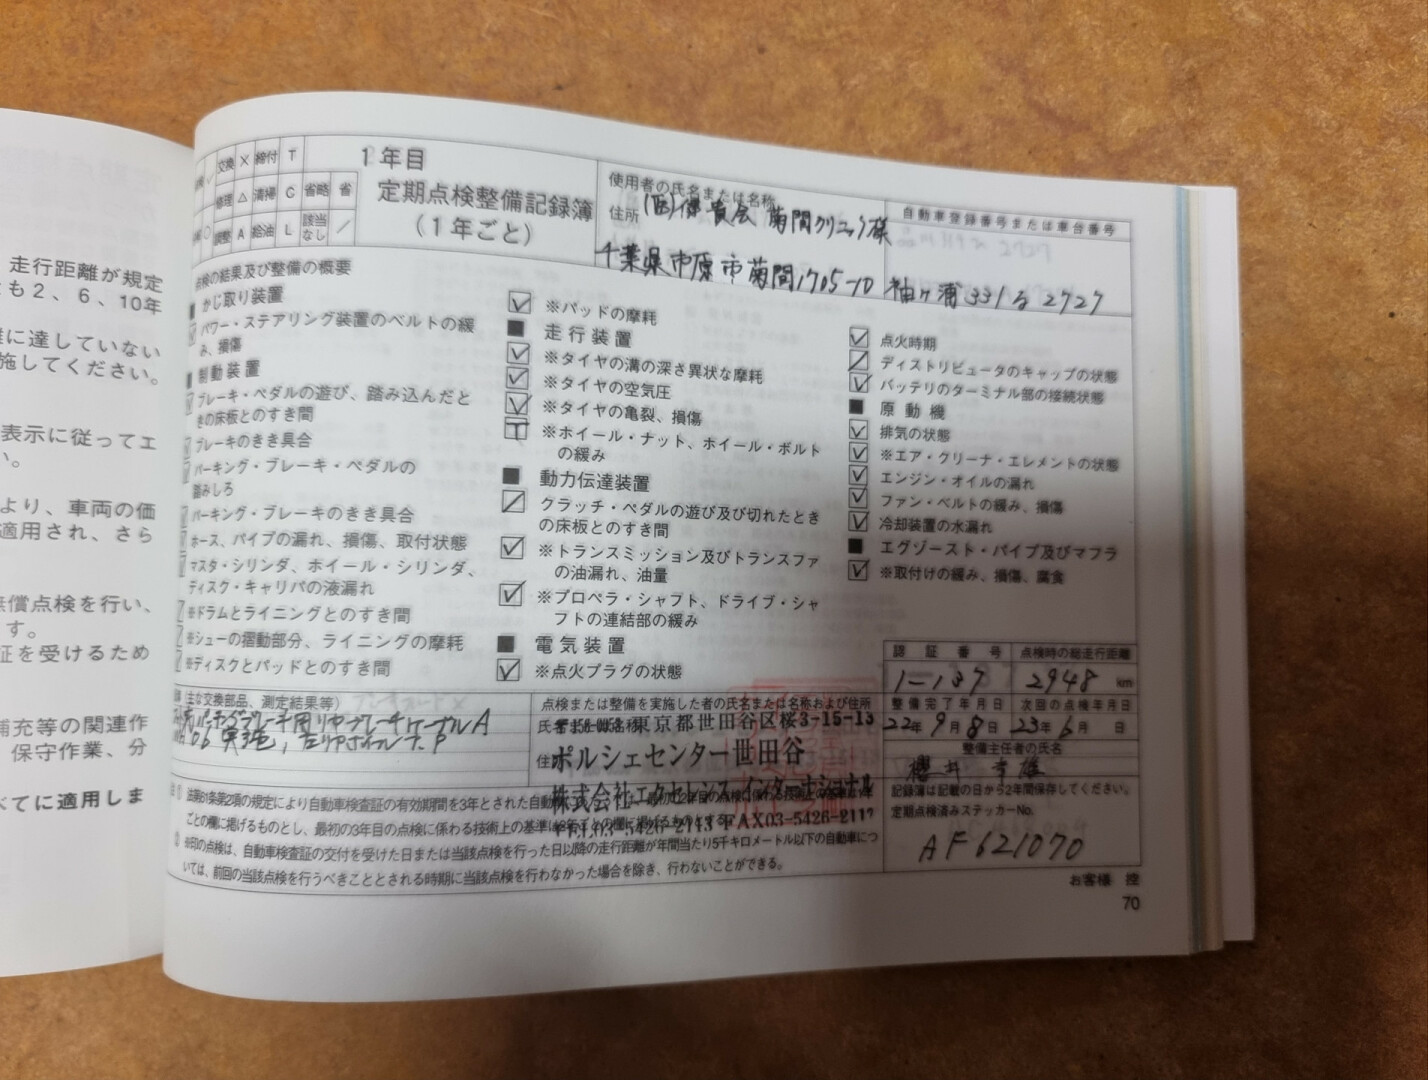 走行距離が規定
も2、6、10年
に達していない
施してください。
表示に従ってエ
い。
より、車両の価
適用され、さら
無償点検を行い、
す。
証を受けるため
補充等の関連作
保守作業、分
べてに適用しま
交換 × 締付 T
修理 △ 清掃 C 省略 省
調整 A 給油 L 該当なし /
1年目
定期点検整備記録簿
(1年ごと)
使用者の氏名または名称
住所
菊間クリニック様
千葉県市原市菊間1705-10
自動車登録番号または車台番号
袖ヶ浦 331 る 2727
点検の結果及び整備の概要
■ かじ取り装置
パワー・ステアリング装置のベルトの緩
み、損傷
■ 制動装置
ブレーキ・ペダルの遊び、踏み込んだと
きの床板とのすき間
ブレーキのきき具合
パーキング・ブレーキ・ペダルの
踏みしろ
パーキング・ブレーキのきき具合
ホース、パイプの漏れ、損傷、取付状態
マスタ・シリンダ、ホイール・シリンダ、
ディスク・キャリパの液漏れ
※ドラムとライニングとのすき間
※シューの摺動部分、ライニングの摩耗
※ディスクとパッドとのすき間
※パッドの摩耗
■ 走行装置
※タイヤの溝の深さ異状な摩耗
※タイヤの空気圧
※タイヤの亀裂、損傷
T ※ホイール・ナット、ホイール・ボルト
の緩み
■ 動力伝達装置
クラッチ・ペダルの遊び及び切れたとき
の床板とのすき間
※トランスミッション及びトランスファ
の油漏れ、油量
※プロペラ・シャフト、ドライブ・シャ
フトの連結部の緩み
■ 電気装置
※点火プラグの状態
点火時期
ディストリビュータのキャップの状態
バッテリのターミナル部の接続状態
■ 原動機
排気の状態
※エア・クリーナ・エレメントの状態
エンジン・オイルの漏れ
ファン・ベルトの緩み、損傷
冷却装置の水漏れ
■ エグゾースト・パイプ及びマフラ
※取付けの緩み、損傷、腐食
(主な交換部品、測定結果等)
パーキングブレーキ用リヤブレーキケーブルA
点検または整備を実施した者の氏名または名称および住所
東京都世田谷区桜3-15-13
ポルシェセンター世田谷
株式会社エクセレンス インターナショナル
TEL03-5426-2113 FAX03-5426-2117
認証番号
1-137
点検時の総走行距離
2948 km
整備完了年月日
22年9月8日
次回の点検年月日
23年6月 日
整備主任者の氏名
櫻井
記録簿は記載の日から2年間保存してください。
定期点検済みステッカーNo.
AF621070
法第61条第2項の規定により自動車検査証の有効期間を3年とされた自動
ごとの欄に掲げるものとし、最初の3年目の点検に係わる技術上の基準は
※印の点検は、自動車検査証の交付を受けた日または当該点検を行った日以降の走行距離が年間当たり5千キロメートル以下の自動車につ
いては、前回の当該点検を行うべきこととされる時期に当該点検を行わなかった場合を除き、行わないことができる。
お客様 控
70